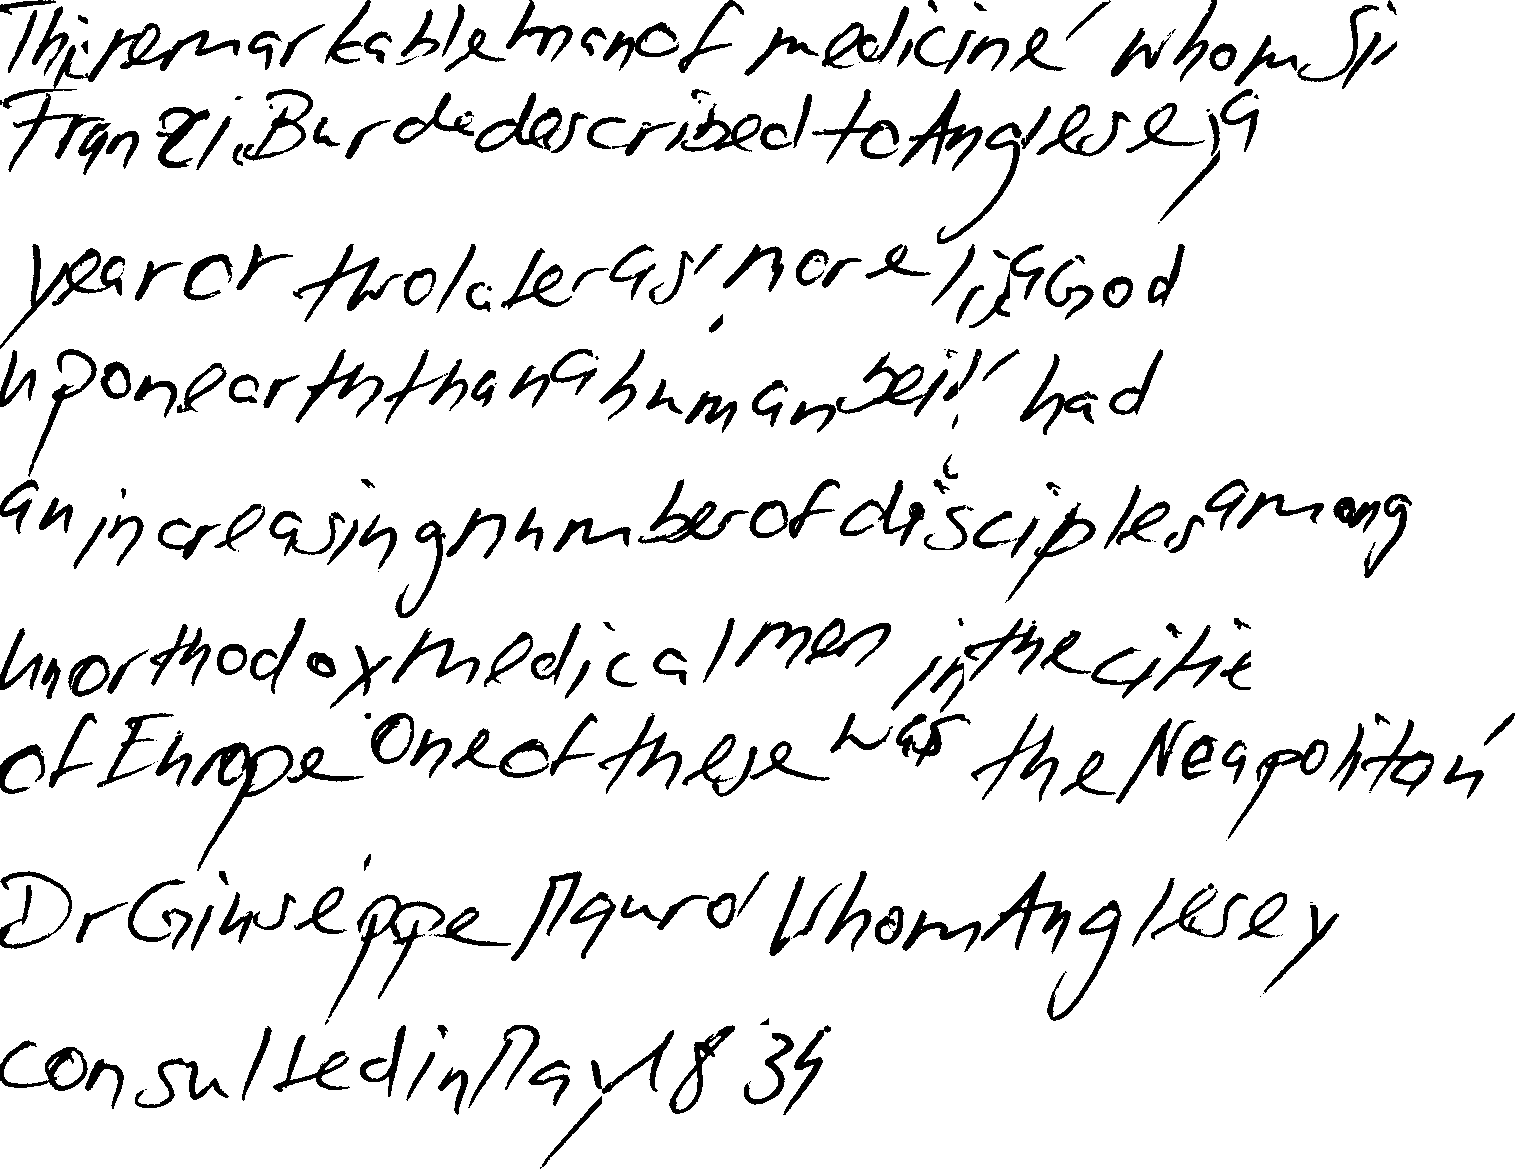 This remarkable man of medicine, whom Sir
Francis Burdett described to Anglesey a
year or two later as 'more like a God
upon earth than a human being', had
an increasing number of disciples among
unorthodox medical men in the cities
of Europe. One of these was the Neapolitan,
Dr Giuseppe Mauro, whom Anglesey
consulted in May 1834